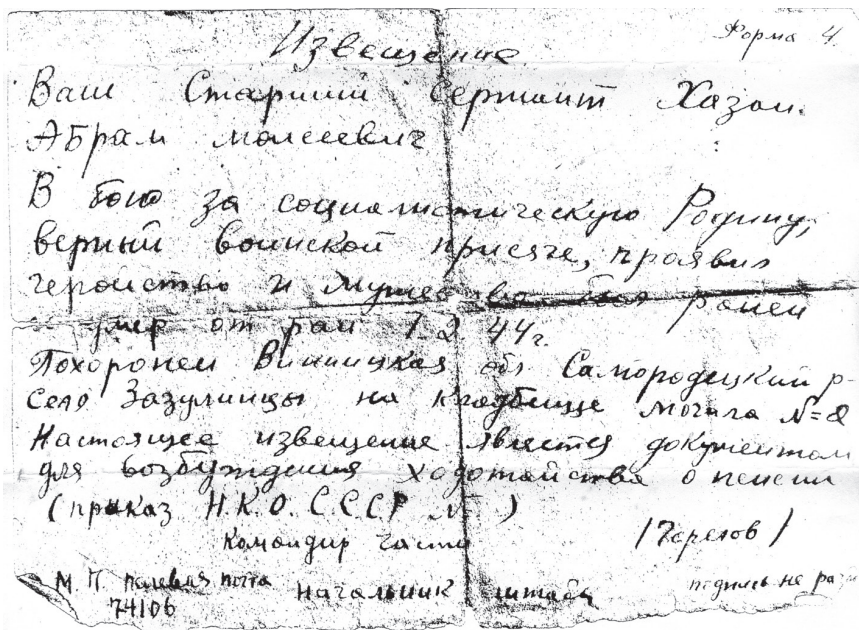 Форма 4.
Извещение
Ваш Старший Сержант Хазан
Абрам Моисеевич
В бою за социалистическую Родину,
верный воинской присяге, проявил
геройство и мужество был ранен
умер от ран 7.2 44г.
Похоронен Винницкая обл Самородецкий р-
село Зазулинцы на кладбище могила N=2
Настоящее извещение является документом
для возбуждения ходотайства о пенсии
(приказ Н.К.О. С.С.С.Р. N )
Командир части
М.П. полевая почта начальник штаба подпись не раз
74106